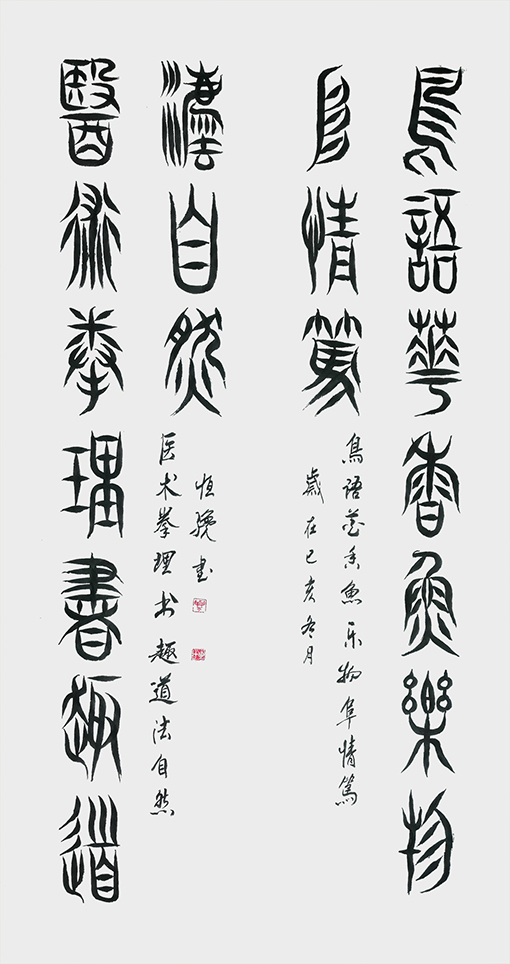 鳥語華香魚樂物
阜情篤
鳥語花香魚乐物阜情篤
歲在己亥冬月
醫術拳理書趣道
灋自然
医术拳理书趣道法自然
恒骁书